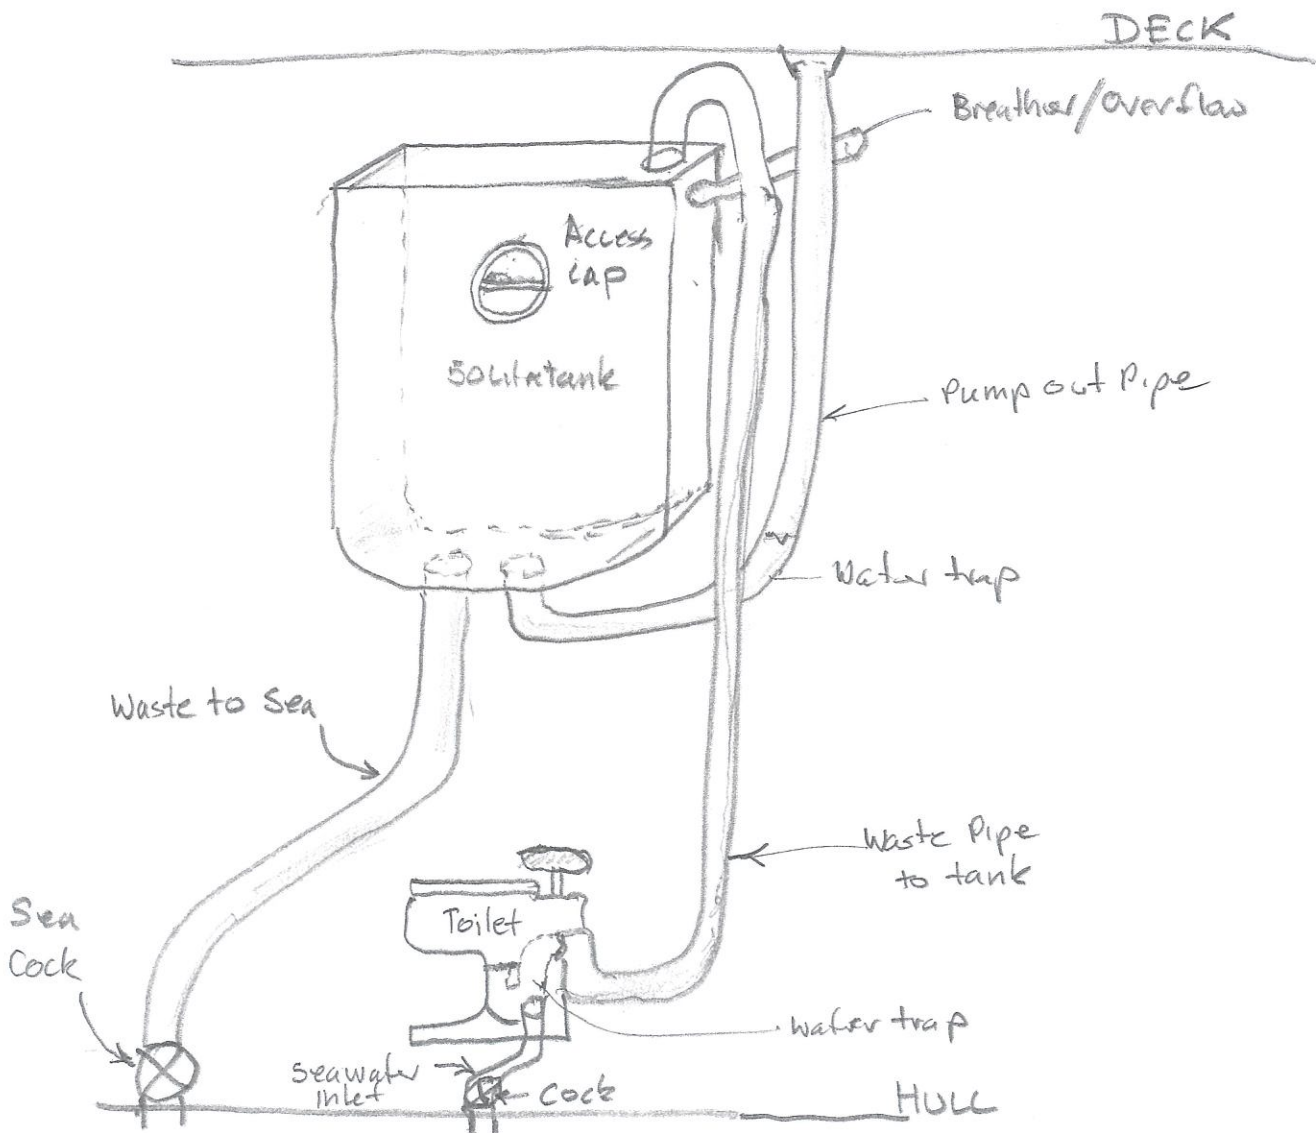 DECK
Breather/overflow
Access
cap
50 Litre tank
Pump out Pipe
Water trap
Waste to Sea
Waste Pipe
to tank
Toilet
Sea
Cock
water trap
Seawater
inlet
Cock
HULL